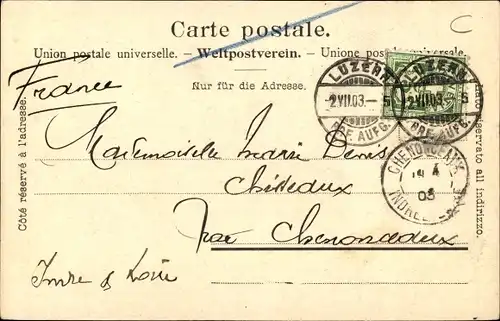 Carte postale.
Union postale universelle. — Weltpostverein. — Unione postale universale.
Nur für die Adresse.
France
Côté réservé à l'adresse.
Lato riservato all indirizzo.
LUZERN
2 VII 03. — 5
BRF. AUFG.
LUZERN
2 VII 03. 5
BRF. AUFG.
CHENONCEAUX
4
03
INDRE
Mademoiselle Denis
par Chenonceaux
Indre & Loire
C